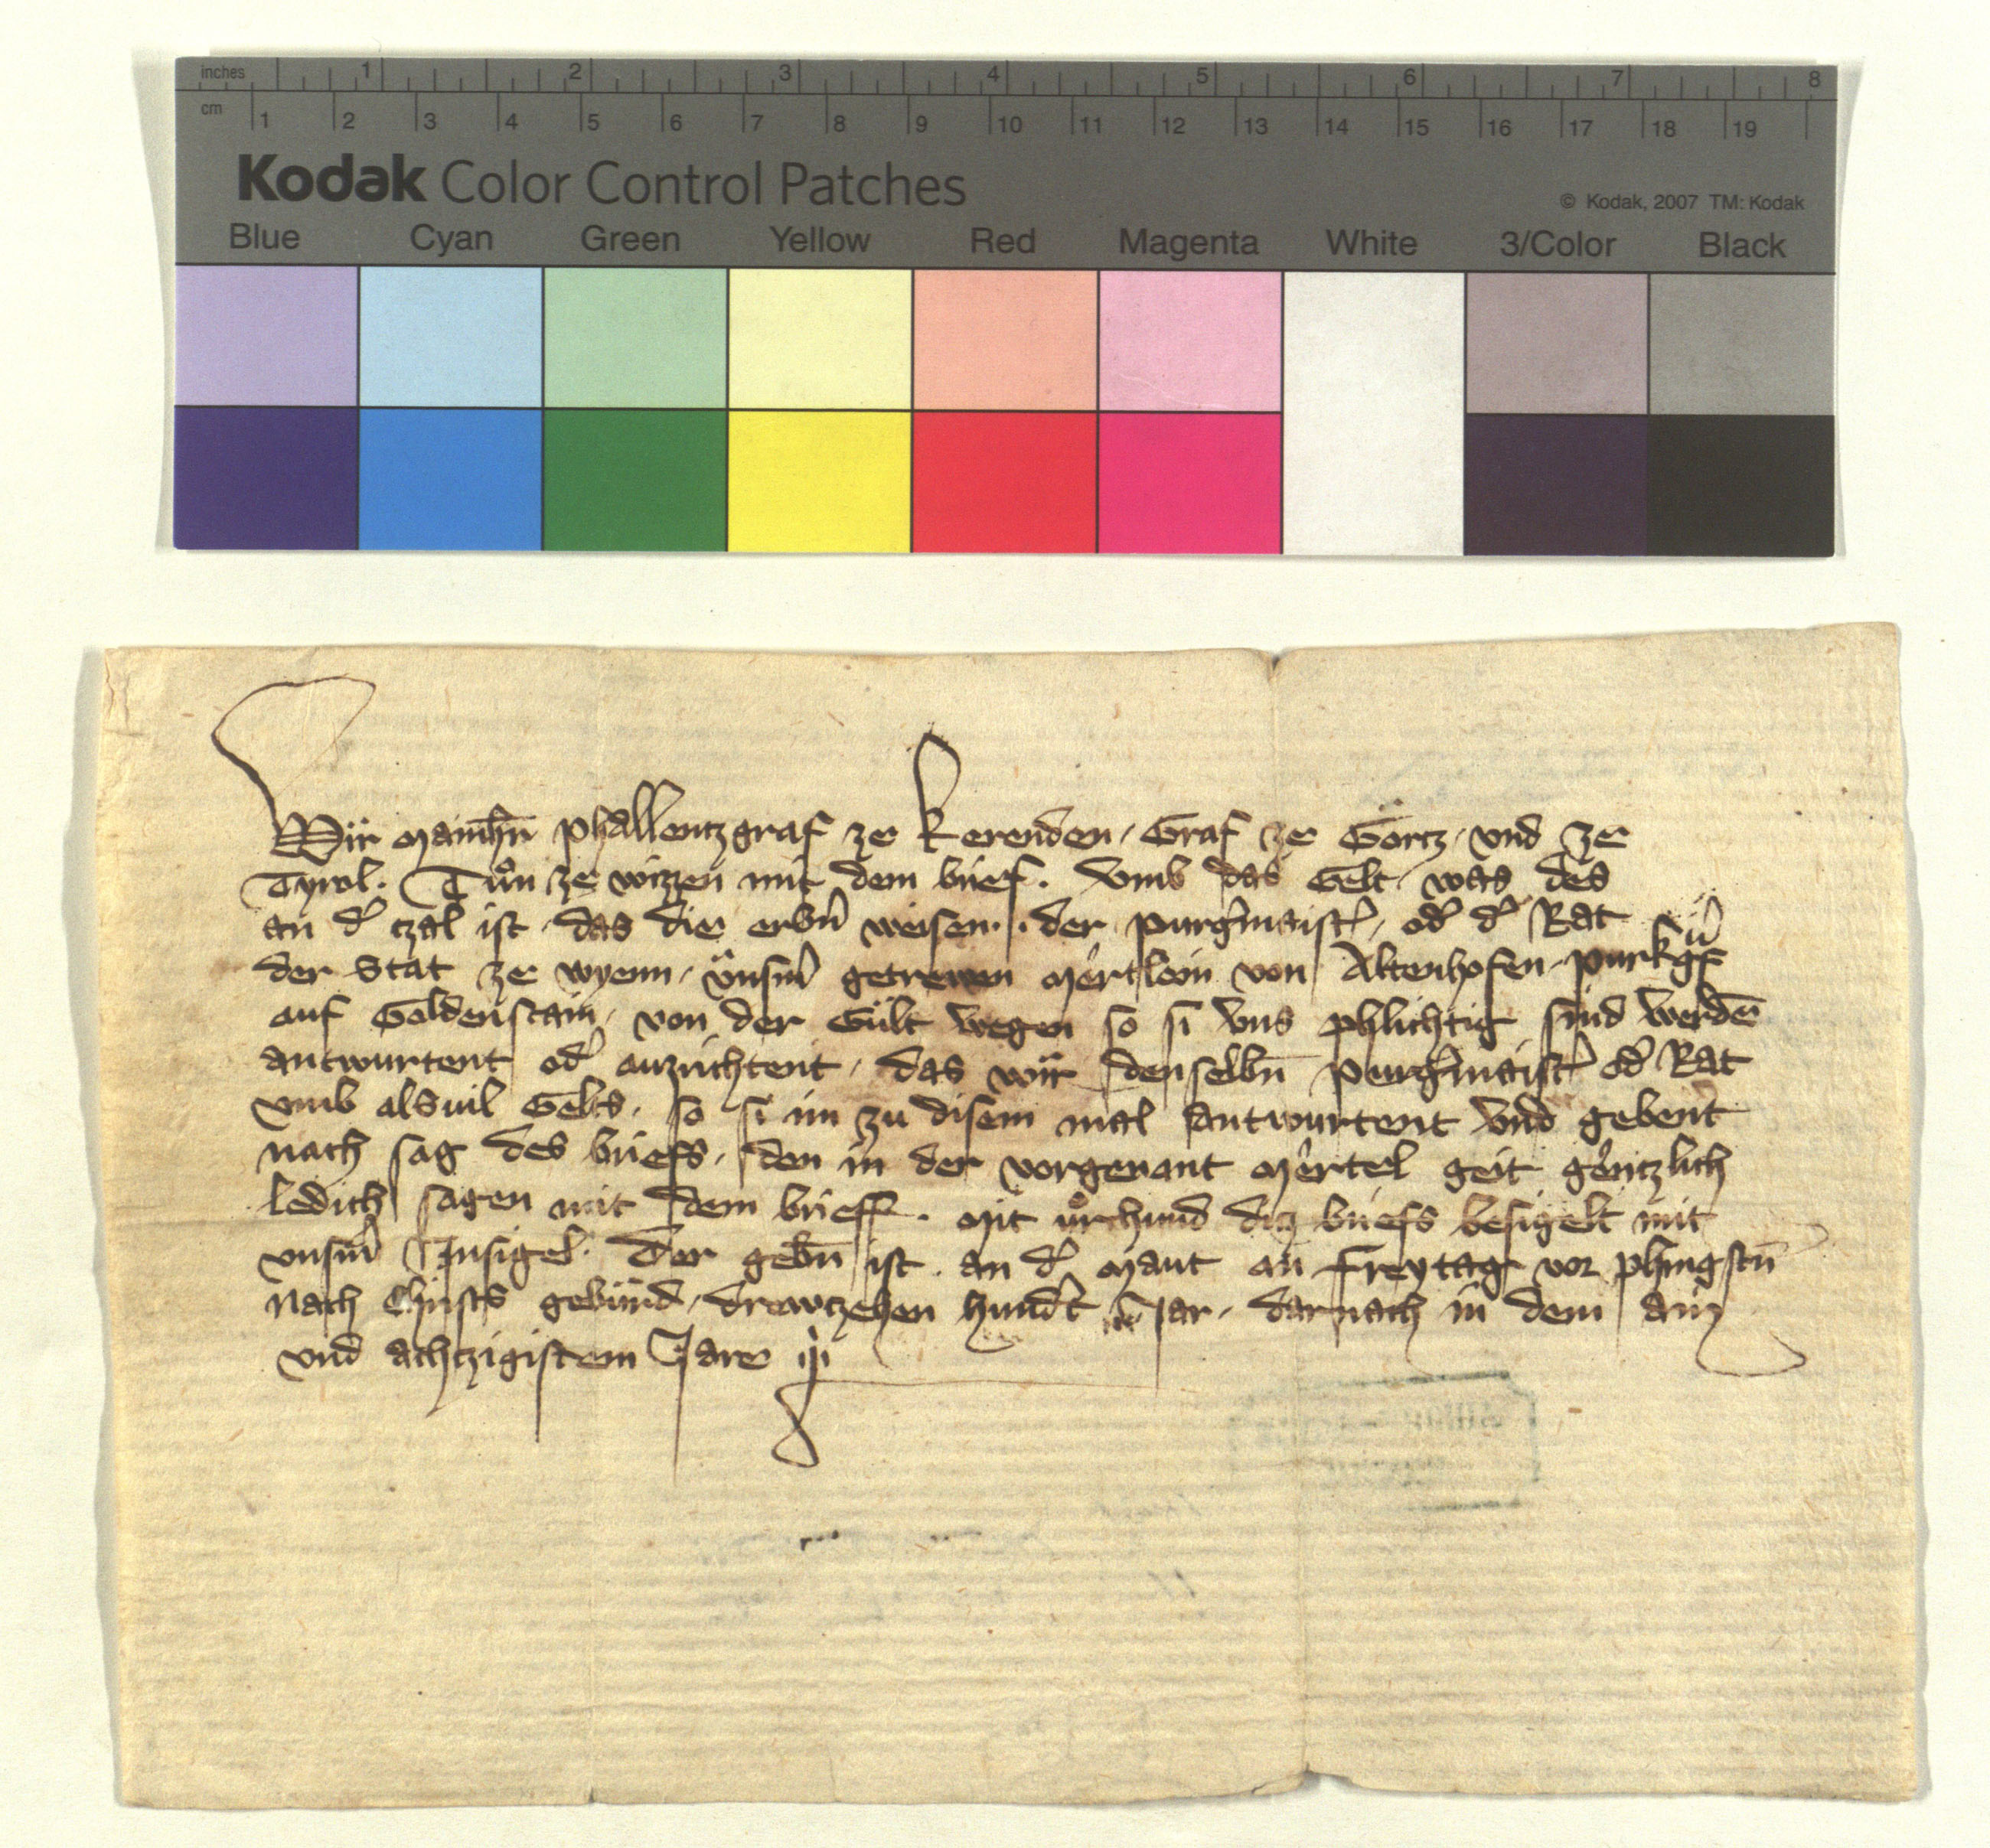 inches 1 2 3 4 5 6 7 8
cm 1 2 3 4 5 6 7 8 9 10 11 12 13 14 15 16 17 18 19
Kodak Color Control Patches
© Kodak, 2007 TM: Kodak
Blue Cyan Green Yellow Red Magenta White 3/Color Black
Wir Mainh̄n phallentzgraf ze kerenden, Graf ze Görtz, vnd ze
Tyrol. Tůn ze wizzen mit dem brief. Vmb das Gelt, was des
an d' tzal ist, das die erb'n weisen, der purg'maist', od' d' Rat
der Stat ze wyenn, vns'm getrewen Mertlein von Altenhofen, purkg'f
auf Goldenstain, von der Gült wegen so si vns phlichtig sind werdē
antwurtent od' auzrichtent, das wir denselbn̄ purg'maist' od' Rat
vmb alsuil Gelts, so si im zu disem mal antwurtent vnd gebent
nach sag des briefs, den in der vorgenant Mertel geit gentzlich
ledich sagen mit dem brieff. Mit vrchund ditz briefs besigelt mit
vns'm Insigel. Der gebn̄ ist, an d' Maut an Freytag vor phingstn̄
Nach Christs gebürd, drewtzehen hund't Jar, darnach in dem ainz
vnd achtzigistem Jare